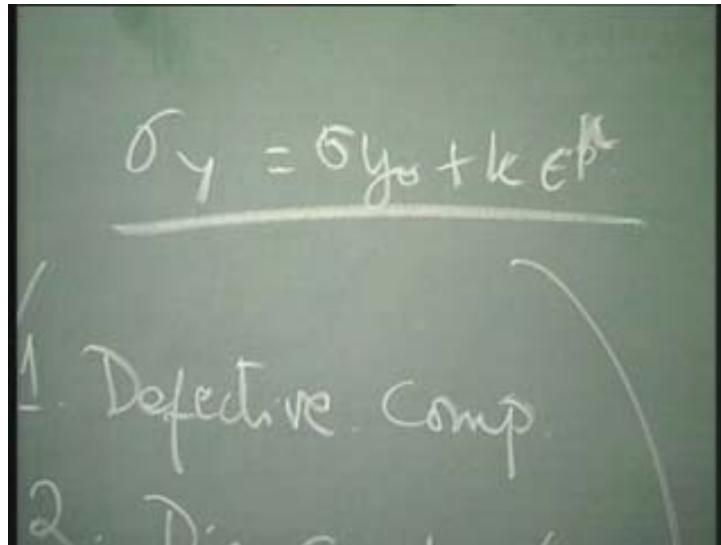 σy = σy₀ + k ϵp^n
1. Defective Comp.
2.